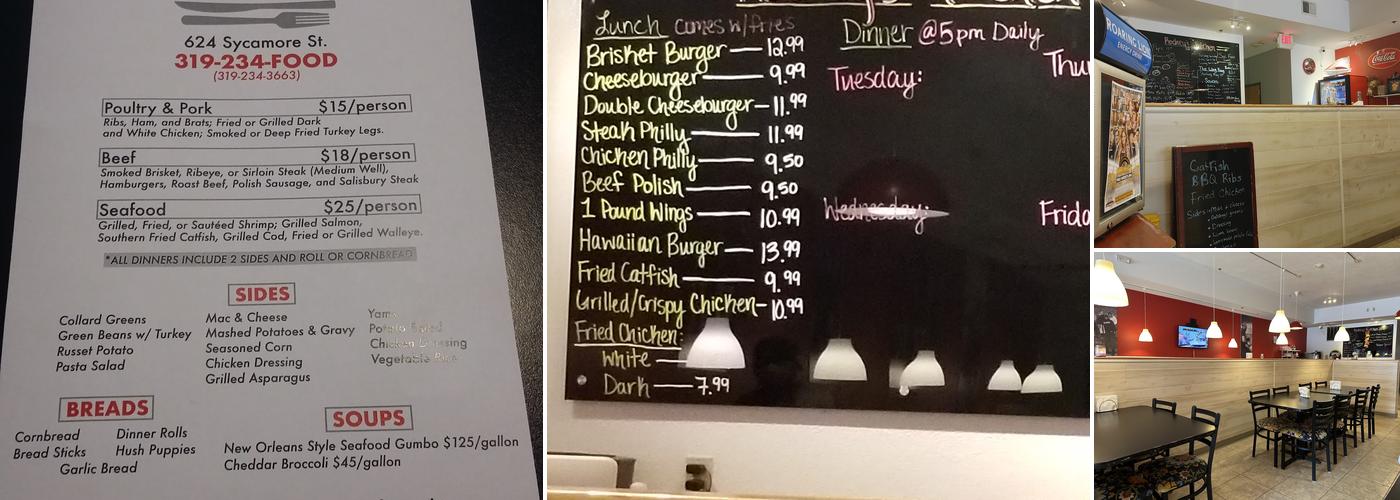 624 Sycamore St.
319-234-FOOD
(319-234-3663)
Poultry & Pork $15/person
Ribs, Ham, and Brats; Fried or Grilled Dark
and White Chicken; Smoked or Deep Fried Turkey Legs.
Beef $18/person
Smoked Brisket, Ribeye, or Sirloin Steak (Medium Well),
Hamburgers, Roast Beef, Polish Sausage, and Salisbury Steak
Seafood $25/person
Grilled, Fried, or Sautéed Shrimp; Grilled Salmon,
Southern Fried Catfish, Grilled Cod, Fried or Grilled Walleye.
*ALL DINNERS INCLUDE 2 SIDES AND ROLL OR CORNBREAD
SIDES
Collard Greens
Green Beans w/ Turkey
Russet Potato
Pasta Salad
Mac & Cheese
Mashed Potatoes & Gravy
Seasoned Corn
Chicken Dressing
Grilled Asparagus
Yams
Potato Salad
Chicken Dressing
Vegetable Rice
BREADS
Cornbread
Bread Sticks
Dinner Rolls
Hush Puppies
Garlic Bread
SOUPS
New Orleans Style Seafood Gumbo $125/gallon
Cheddar Broccoli $45/gallon
Lunch comes w/fries
Brisket Burger 12.99
Cheeseburger 9.99
Double Cheeseburger 11.99
Steak Philly 11.99
Chicken Philly 9.50
Beef Polish 9.50
1 Pound Wings 10.99
Hawaiian Burger 13.99
Fried Catfish 9.99
Grilled/Crispy Chicken 10.99
Fried Chicken:
White
Dark 7.99
Dinner @5pm Daily
Tuesday:
Wednesday:
Thu
Frida
ROARING LION
ENERGY DRINK
EXIT
Coca-Cola
Catfish
BBQ Ribs
Fried Chicken